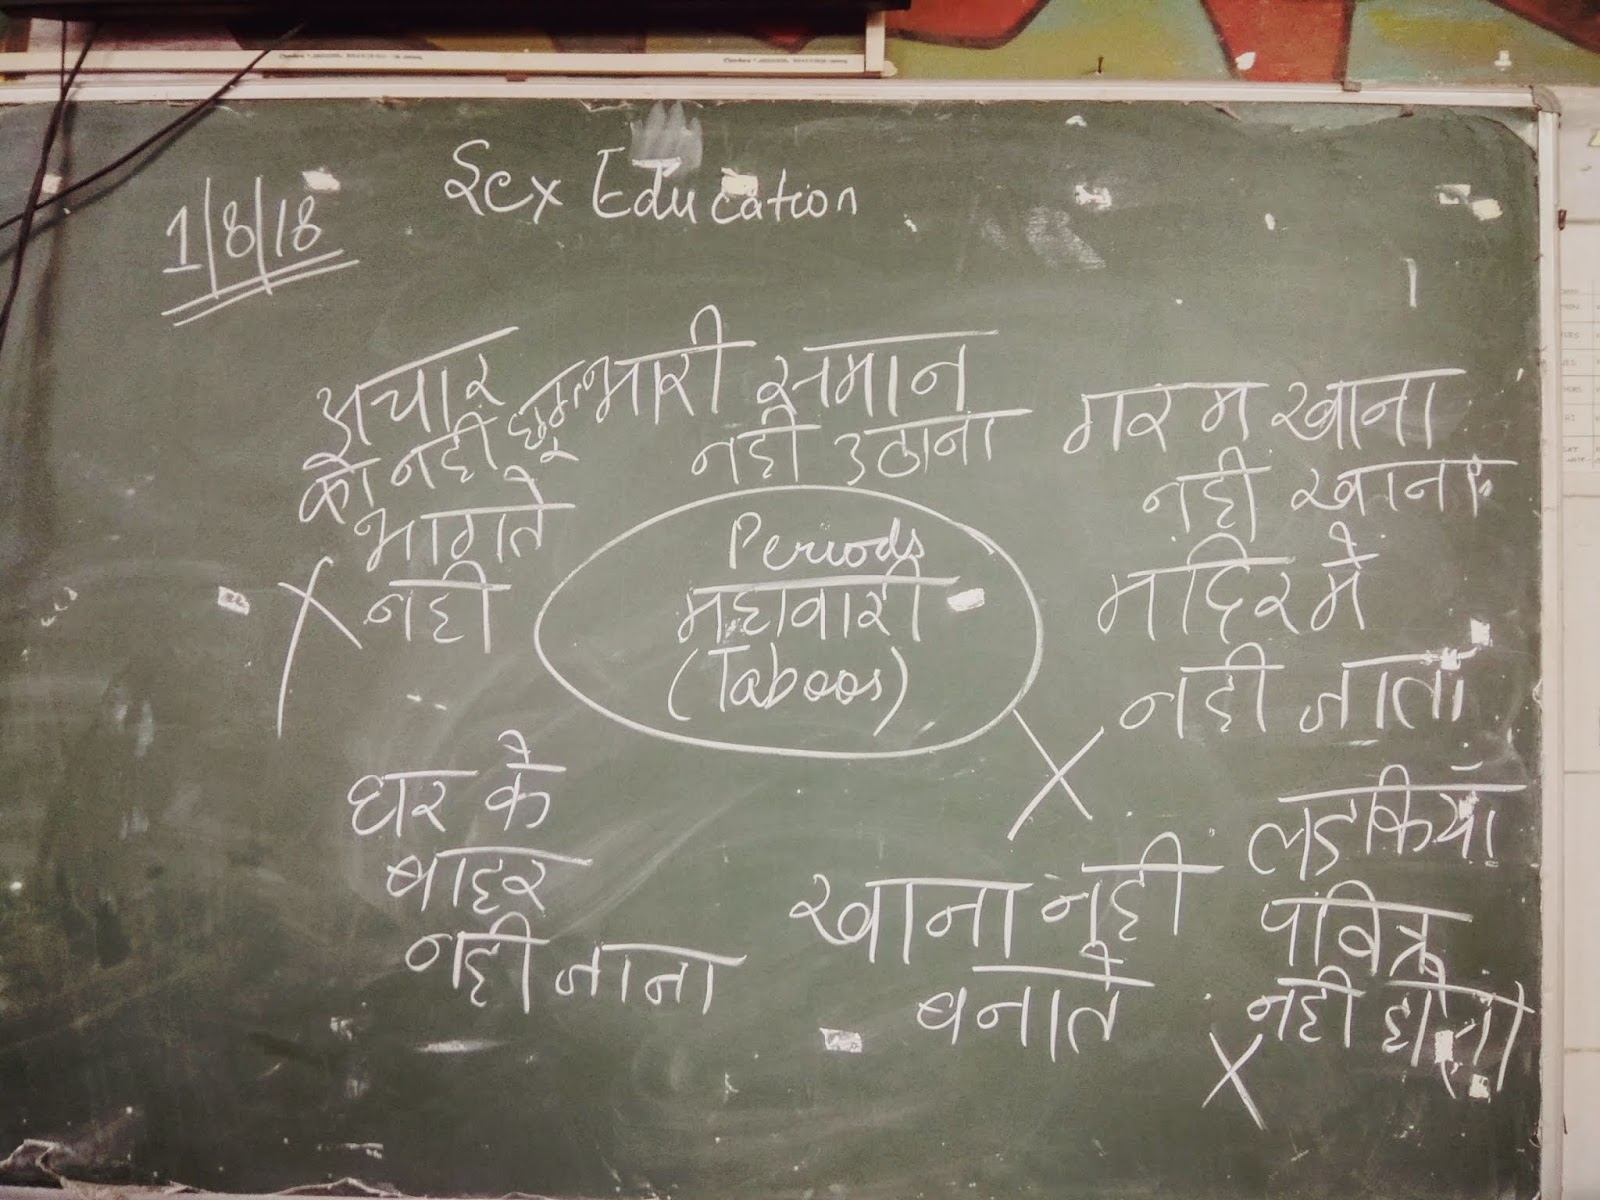 Sex Education
1/8/18
अचार
को नही छूते
भागते
नही
भारी समान
नही उठाना
गरम खाना
नही खाना
Periods
महावारी
(Taboos)
मदिर मे
नही जाता
घर के
बाहर
नही जाना
खाना नही
बनाते
लडकियाँ
पवित्र
नही होती